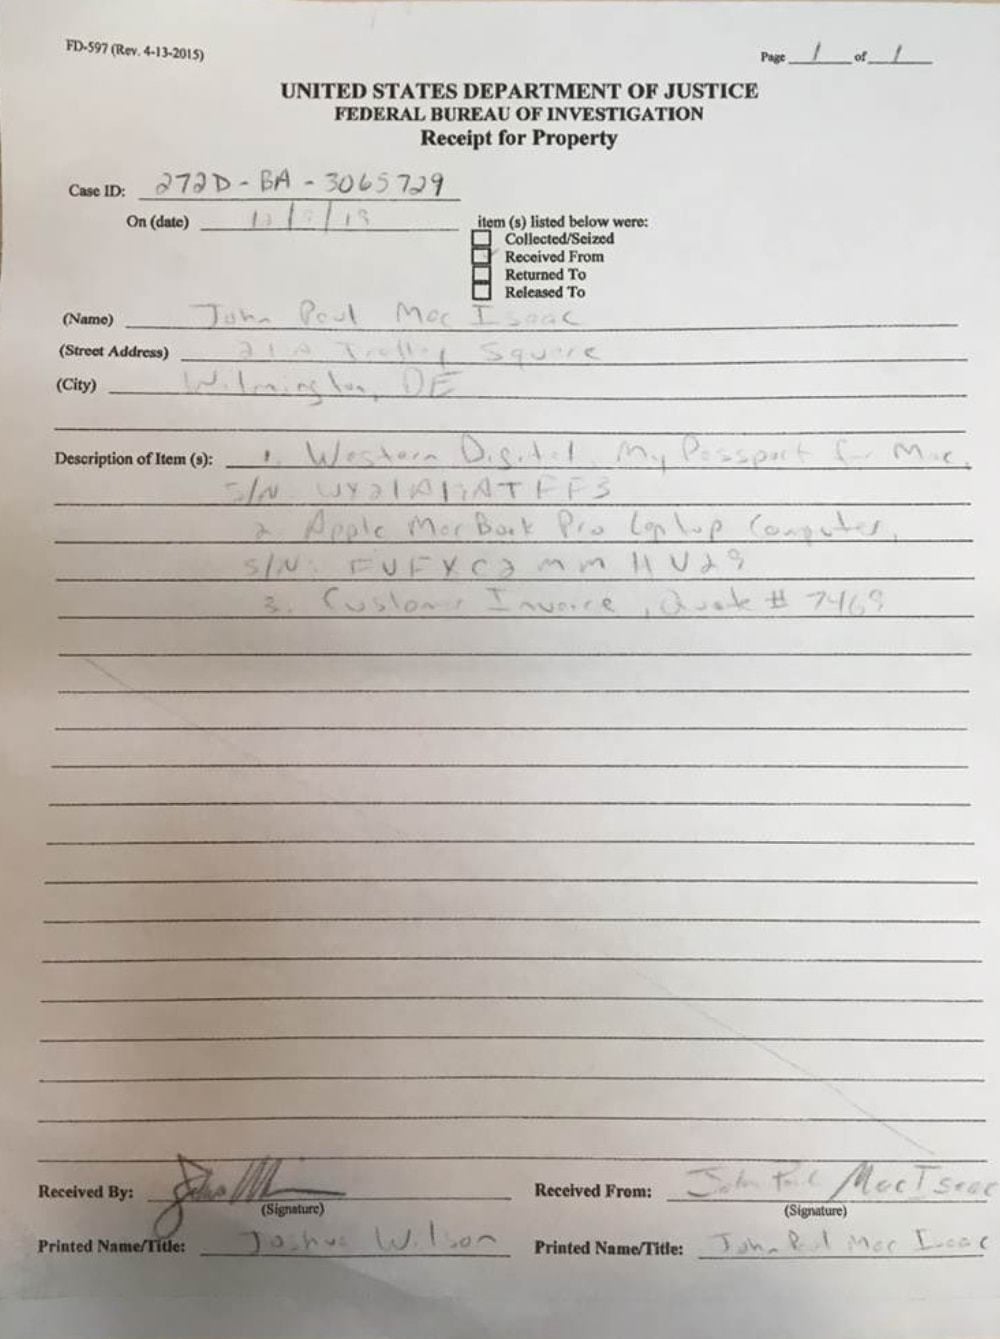 FD-597 (Rev. 4-13-2015)
Page 1 of 1
UNITED STATES DEPARTMENT OF JUSTICE
FEDERAL BUREAU OF INVESTIGATION
Receipt for Property
Case ID: 272D-BA-3065729
On (date) 12/9/19
item (s) listed below were:
Collected/Seized
Received From
Returned To
Released To
(Name) John Paul Mac Isaac
(Street Address) 21A Trolley Square
(City) Wilmington, DE
Description of Item (s): 1. Western Digital My Passport for Mac,
S/N
2. Apple MacBook Pro Laptop Computer,
S/N: FVFXC2MMHV29
3. Customer Invoice, Quote # 7469
Received By:
(Signature)
Received From: John Paul Mac Isaac
(Signature)
Printed Name/Title: Joshua Wilson
Printed Name/Title: John Paul Mac Isaac